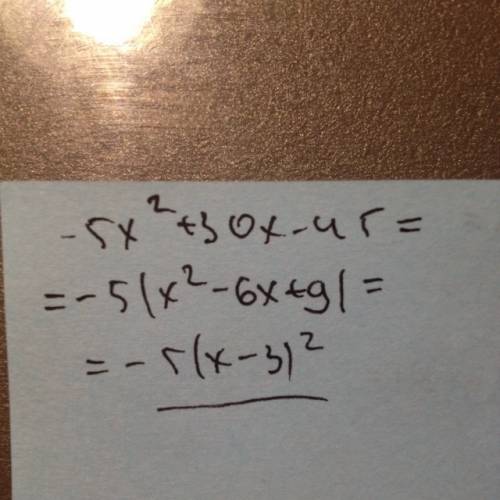 -5x²+30x-45=
=-5(x²-6x+9)=
=-5(x-3)²